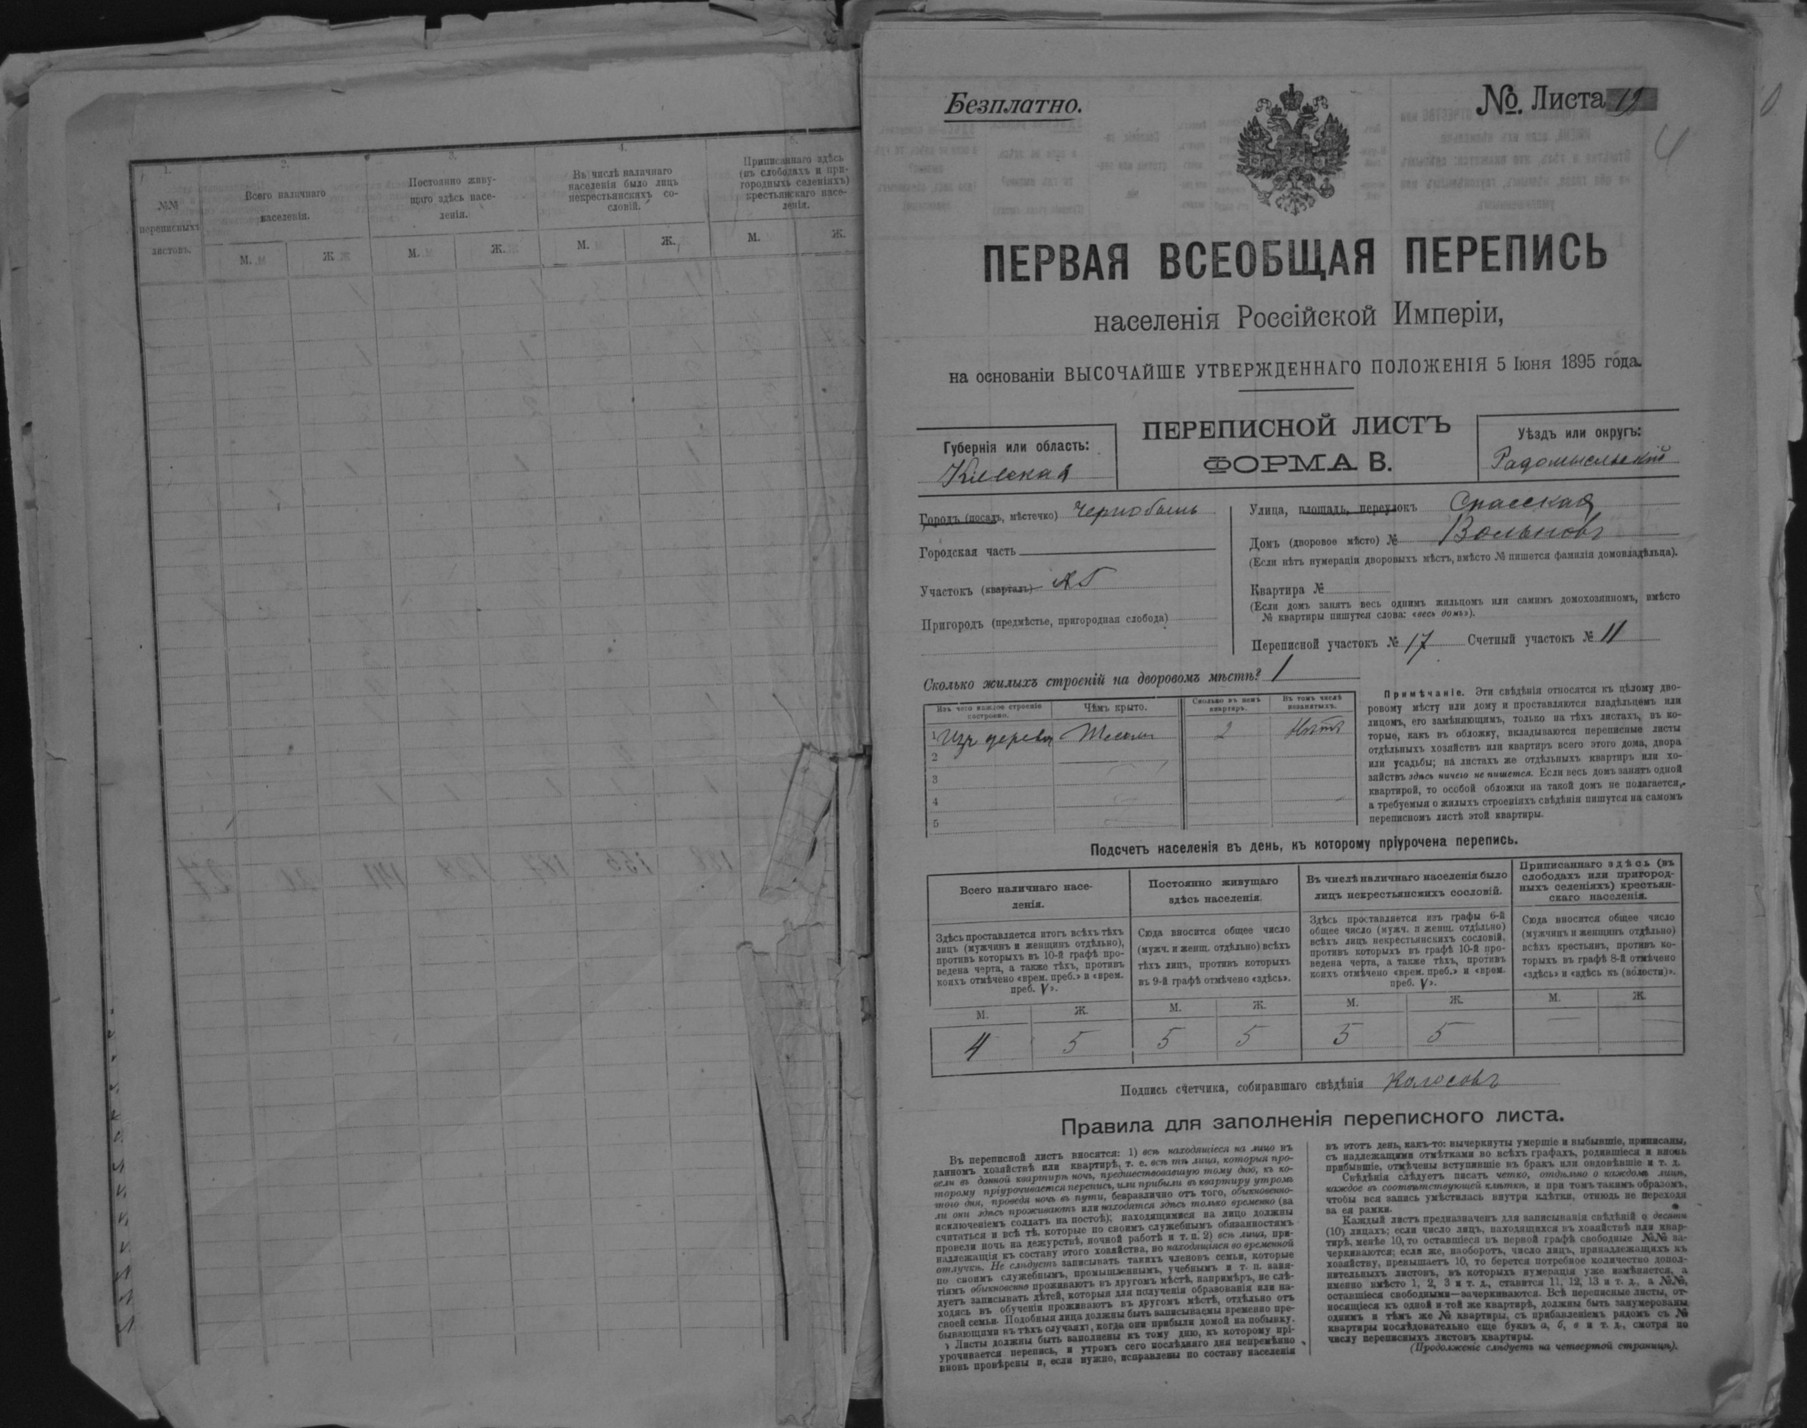 1.
2.
3.
4.
№№
переписныхъ
листовъ.
Всего наличнаго
населенія.
Постоянно живу-
щаго здѣсь насе-
ленія.
Въ числѣ наличнаго
населенія было лицъ
некрестьянскихъ со-
словій.
Приписаннаго здѣсь
(въ слободахъ и при-
городныхъ селеніяхъ)
крестьянскаго насе-
ленія.
М.
Ж.
М.
Ж.
М.
Ж.
М.
Ж.
Безплатно.
№. Листа 12
4
ПЕРВАЯ ВСЕОБЩАЯ ПЕРЕПИСЬ
населенія Россійской Имперіи,
на основаніи ВЫСОЧАЙШЕ УТВЕРЖДЕННАГО ПОЛОЖЕНІЯ 5 Іюня 1895 года.
Губернія или область:
Кіевская
ПЕРЕПИСНОЙ ЛИСТЪ
ФОРМА В.
Уѣздъ или округъ:
Радомысльскій
Городъ (посадъ, мѣстечко) Чернобыль
Городская часть
Участокъ (кварталъ)
Пригородъ (предмѣстье, пригородная слобода)
Улица, площадь, переулокъ Спасская
Домъ (дворовое мѣсто) №
(Если нѣтъ нумераціи дворовыхъ мѣстъ, вмѣсто № пишется фамилія домовладѣльца).
Квартира №
(Если домъ занятъ весь однимъ жильцомъ или самимъ домохозяиномъ, вмѣсто
№ квартиры пишутся слова: «весь домъ»).
Переписной участокъ № 17 Счетный участокъ № 11
Сколько жилыхъ строеній на дворовомъ мѣстѣ? 1
Изъ чего каждое строеніе
построено.
Чѣмъ крыто.
Сколько въ немъ
квартиръ.
Въ томъ числѣ
незанятыхъ.
1 Изъ дерева Тесомъ 2 Нѣтъ
2
3
4
5
Примѣчаніе. Эти свѣдѣнія относятся къ цѣлому дво-
ровому мѣсту или дому и проставляются владѣльцемъ или
лицомъ, его замѣняющимъ, только на тѣхъ листахъ, въ ко-
торые, какъ въ обложку, вкладываются переписные листы
отдѣльныхъ хозяйствъ или квартиръ всего этого дома, двора
или усадьбы; на листахъ же отдѣльныхъ квартиръ или хо-
зяйствъ здѣсь ничего не пишется. Если весь домъ занятъ одной
квартирой, то особой обложки на такой домъ не полагается,
а требуемыя о жилыхъ строеніяхъ свѣдѣнія пишутся на самомъ
переписномъ листѣ этой квартиры.
Подсчетъ населенія въ день, къ которому пріурочена перепись.
Всего наличнаго насе-
ленія.
Постоянно живущаго
здѣсь населенія.
Въ числѣ наличнаго населенія было
лицъ некрестьянскихъ сословій.
Приписаннаго здѣсь (въ
слободахъ или пригород-
ныхъ селеніяхъ) крестьян-
скаго населенія.
Здѣсь проставляется итогъ всѣхъ тѣхъ
лицъ (мужчинъ и женщинъ отдѣльно),
противъ которыхъ въ 10-й графѣ про-
ведена черта, а также тѣхъ, противъ
коихъ отмѣчено «врем. преб.» и «врем.
преб. V».
Сюда вносится общее число
(мужч. и женщ. отдѣльно) всѣхъ
тѣхъ лицъ, противъ которыхъ
въ 9-й графѣ отмѣчено «здѣсь».
Здѣсь проставляется изъ графы 6-й
общее число (мужч. и женщ. отдѣльно)
всѣхъ лицъ некрестьянскихъ сословій,
противъ которыхъ въ графѣ 10-й про-
ведена черта, а также тѣхъ, противъ
коихъ отмѣчено «врем. преб.» и «врем.
преб. V».
Сюда вносится общее число
(мужчинъ и женщинъ отдѣльно)
всѣхъ крестьянъ, противъ ко-
торыхъ въ графѣ 8-й отмѣчено
«здѣсь» и «здѣсь къ (волости)».
М. Ж. М. Ж. М. Ж. М. Ж.
4 5 5 5 5 5
Подпись счетчика, собиравшаго свѣдѣнія Колосовъ
Правила для заполненія переписного листа.
Въ переписной листъ вносятся: 1) всѣ находящіеся на лицо въ
данномъ хозяйствѣ или квартирѣ, т. е. всѣ тѣ лица, которыя про-
вели въ данной квартирѣ ночь, предшествовавшую тому дню, къ ко-
торому пріурочивается перепись, или прибыли въ квартиру утромъ
того дня, проведя ночь въ пути, безразлично отъ того, обыкновенно-
ли они здѣсь проживаютъ или находятся здѣсь только временно (за
исключеніемъ солдатъ на постоѣ); находящимися на лицо должны
считаться и всѣ тѣ, которые по своимъ служебнымъ обязанностямъ
провели ночь на дежурствѣ, ночной работѣ и т. п. 2) всѣ лица, при-
надлежащія къ составу этого хозяйства, но находящіяся во временной
отлучкѣ. Не слѣдуетъ записывать такихъ членовъ семьи, которые
по своимъ служебнымъ, промышленнымъ, учебнымъ и т. п. заня-
тіямъ обыкновенно проживаютъ въ другомъ мѣстѣ, напримѣръ, не слѣ-
дуетъ записывать дѣтей, которыя для полученія образованія или на-
ходясь въ обученіи проживаютъ въ другомъ мѣстѣ, отдѣльно отъ
своей семьи. Подобныя лица должны быть записываемы временно пре-
бывающими въ тѣхъ случаяхъ, когда они прибыли домой на побывку.
Листы должны быть заполнены къ тому дню, къ которому прі-
урочивается перепись, и утромъ сего послѣдняго дня непремѣнно
вновь провѣрены и, если нужно, исправлены по составу населенія
въ этотъ день, какъ-то: вычеркнуты умершіе и выбывшіе, приписаны,
съ надлежащими отмѣтками во всѣхъ графахъ, родившіеся и вновь
прибывшіе, отмѣчены вступившіе въ бракъ или овдовѣвшіе и т. д.
Свѣдѣнія слѣдуетъ писать четко, отдѣльно о каждомъ лицѣ,
каждое въ соотвѣтствующей клѣткѣ, и при томъ такимъ образомъ,
чтобы вся запись умѣстилась внутри клѣтки, отнюдь не переходя
за ея рамки.
Каждый листъ предназначенъ для записыванія свѣдѣній о десяти
(10) лицахъ; если число лицъ, находящихся въ хозяйствѣ или квар-
тирѣ, менѣе 10, то оставшіеся въ первой графѣ свободные №№ за-
черкиваются; если же, наоборотъ, число лицъ, принадлежащихъ къ
хозяйству, превышаетъ 10, то берется потребное количество допол-
нительныхъ листовъ, въ которыхъ нумерація уже измѣняется, а
именно вмѣсто 1, 2, 3 и т. д., ставится 11, 12, 13 и т. д., а №№,
оставшіеся свободными—зачеркиваются. Всѣ переписные листы, от-
носящіеся къ одной и той же квартирѣ, должны быть занумерованы
однимъ и тѣмъ же № квартиры, съ прибавленіемъ рядомъ съ №
квартиры послѣдовательно еще буквъ а, б, в и т. д., смотря по
числу переписныхъ листовъ квартиры.
(Продолженіе слѣдуетъ на четвертой страницѣ).